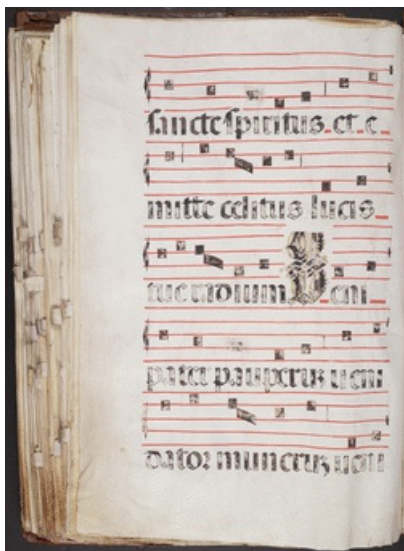 sancte spiritus et e
mitte celitus lucis
tue radium Veni
pater pauperuz ueni
dator muneruz ueni